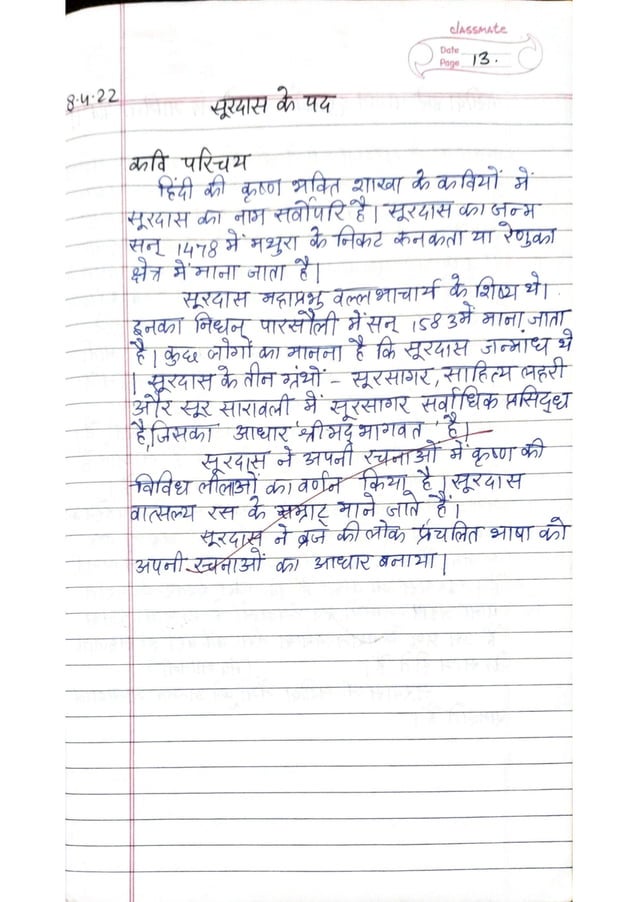 classmate
Date
Page 13.
8.4.22
सूरदास के पद
कवि परिचय
हिंदी की कृष्ण भक्ति शाखा के कवियों में
सूरदास का नाम सर्वोपरि है। सूरदास का जन्म
सन् 1478 में मथुरा के निकट रुनकता या रेणुका
क्षेत्र में माना जाता है।
सूरदास महाप्रभु वल्लभाचार्य के शिष्य थे।
इनका निधन पारसौली में सन् 1583 में माना जाता
है। कुछ लोगों का मानना है कि सूरदास जन्मांध थे
। सूरदास के तीन ग्रंथों - सूरसागर, साहित्य लहरी
और सूर सारावली में सूरसागर सर्वाधिक प्रसिद्ध
है, जिसका आधार 'श्रीमद् भागवत' है।
सूरदास ने अपनी रचनाओं में कृष्ण की
विविध लीलाओं का वर्णन किया है। सूरदास
वात्सल्य रस के सम्राट् माने जाते हैं।
सूरदास ने ब्रज की लोक प्रचलित भाषा को
अपनी रचनाओं का आधार बनाया।